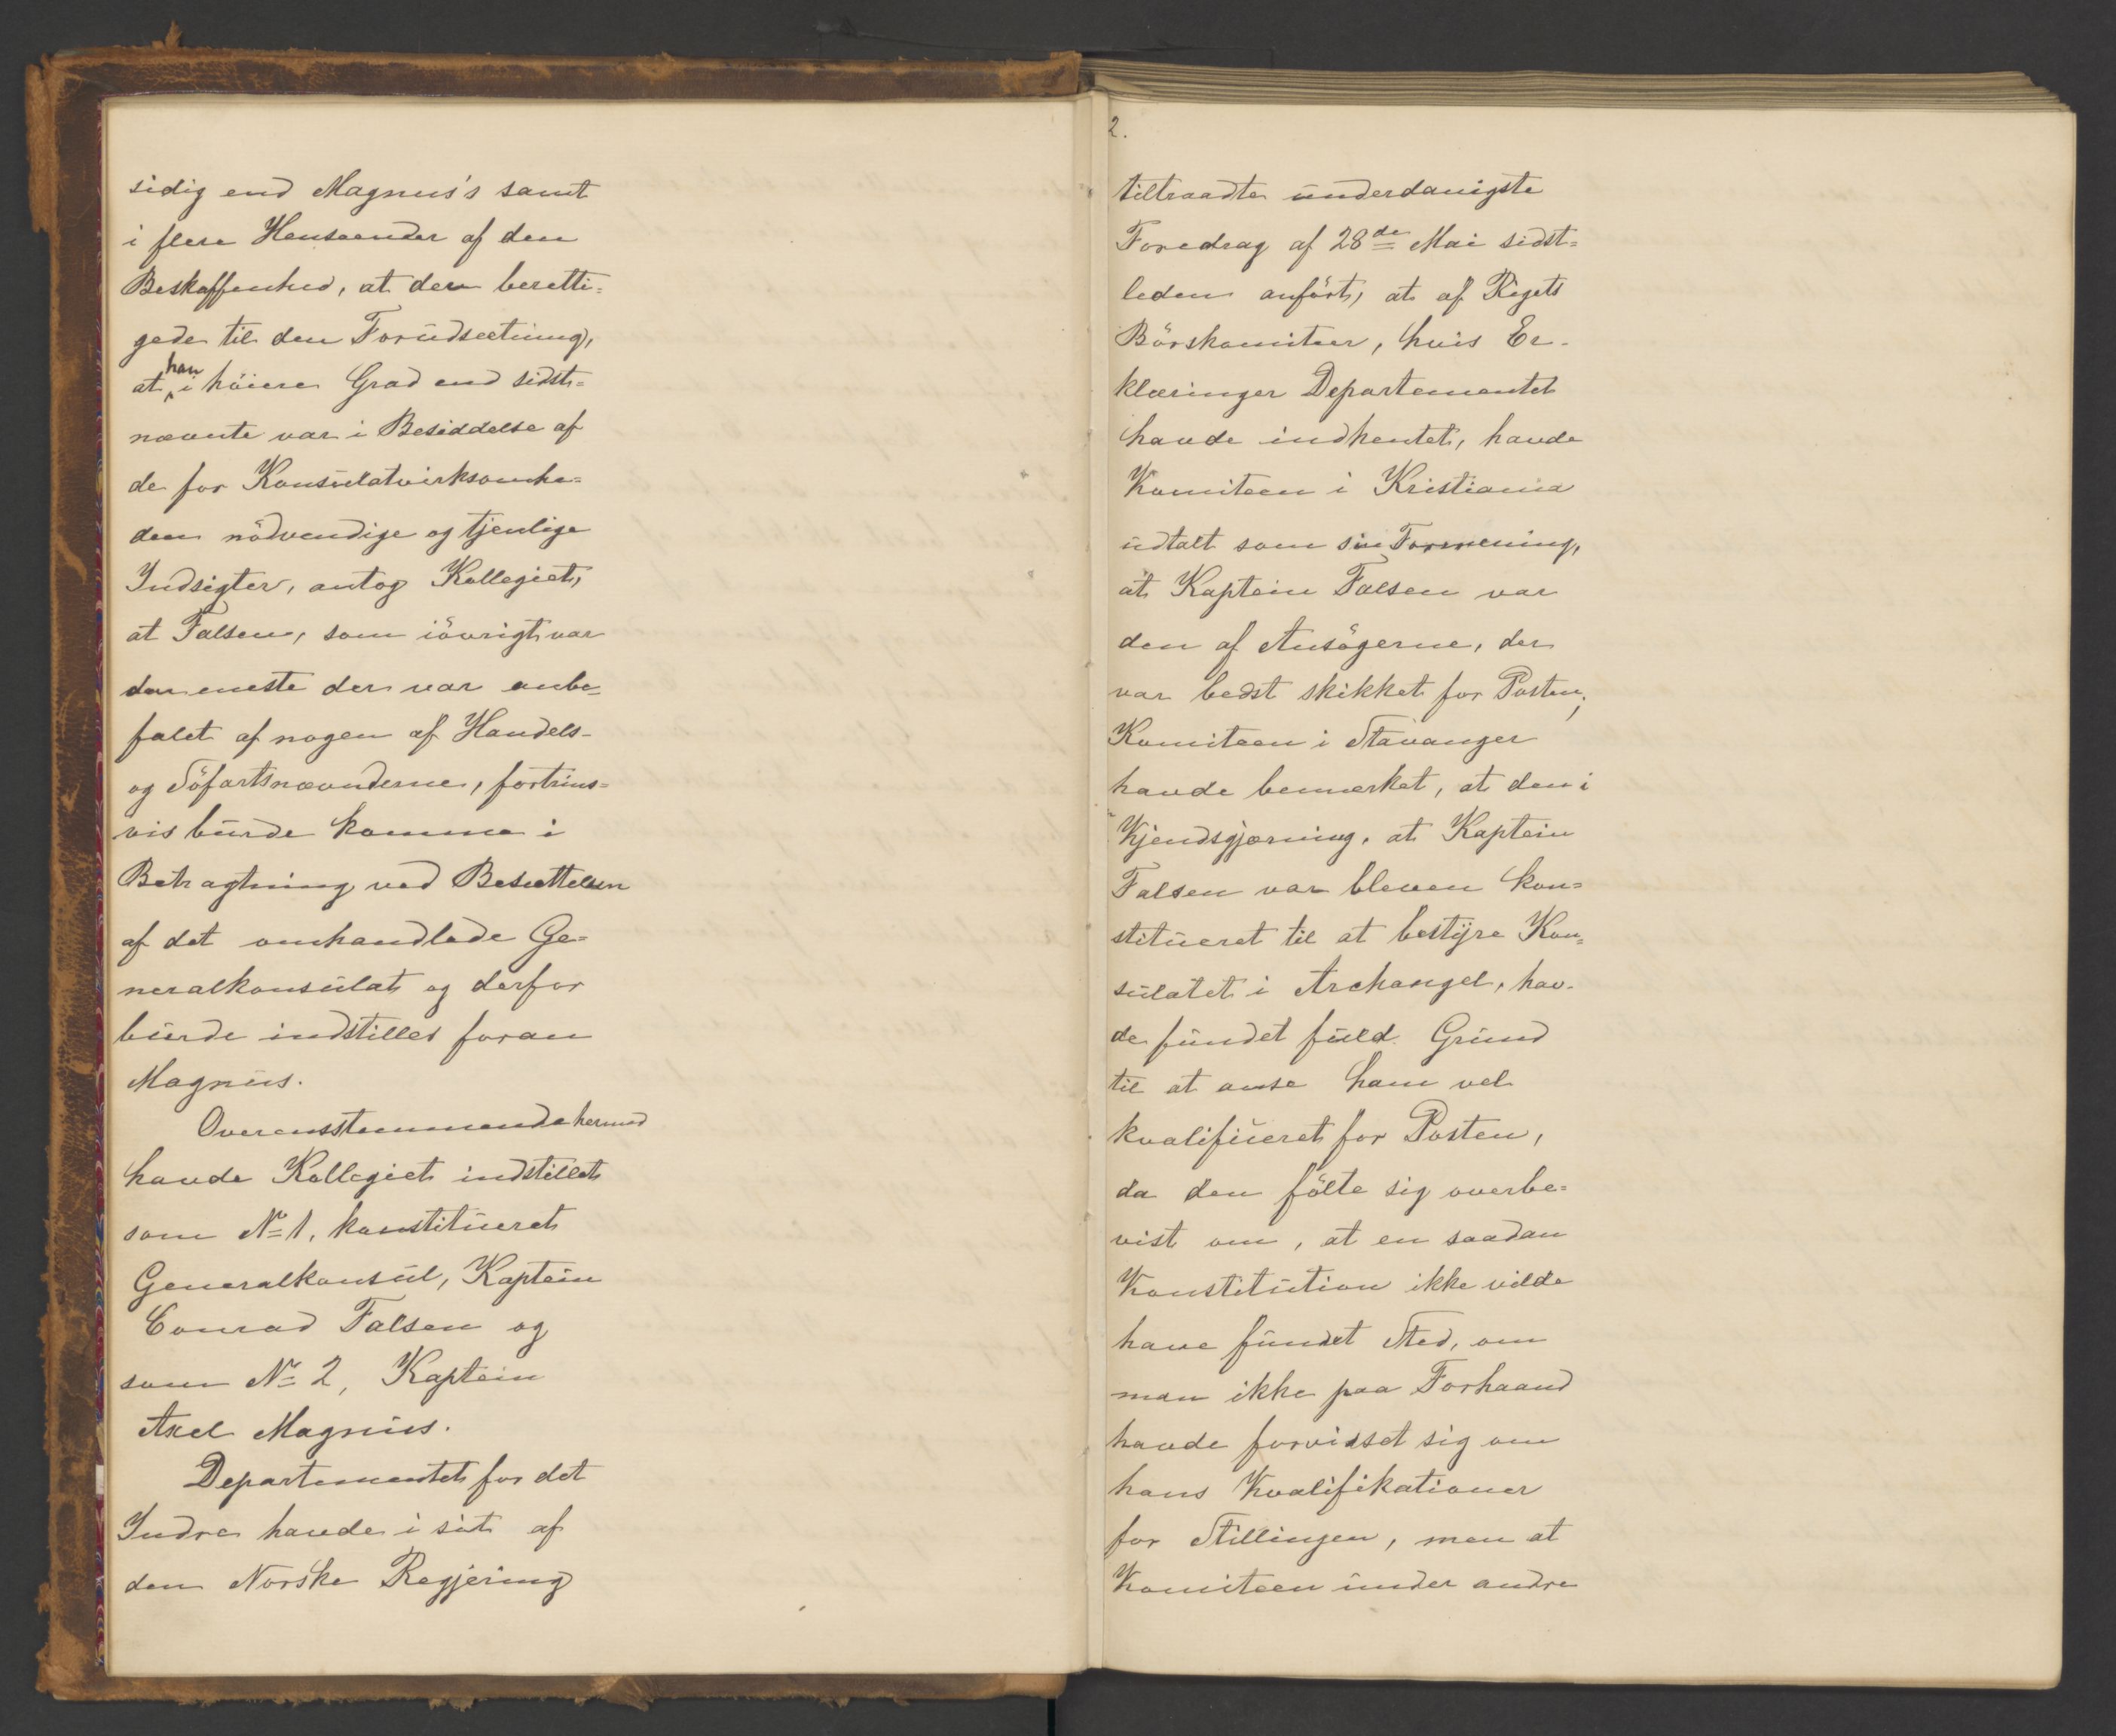 sidig end Magnus's samt
i flere Henseender af den
Beskaffenhed, at den beretti=
gede til den Forudsætning,
at han i höiere Grad end sidst=
nævnte var i Besiddelse af
de for Konsulatvirksomhe=
den nödvendige og tjenlige
Indsigter, antog Kollegiet,
at Falsen, som iövrigt var
den eneste der var anbe=
falet af nogen af Handels-
og Söfartsnævnderne, fortrins=
vis burde komme i
Betragtning ved Besættelsen
af det omhandlede Ge=
neralkonsulat og derfor
burde indstilles foran
Magnus.
Overensstemmende hermed
havde Kollegiet indstillet
som No 1, konstitueret
Generalkonsul, Kaptein
Conrad Falsen og
som No 2, Kaptein
Axel Magnus.
Departementet for det
Indre havde i sit af
den Norske Regjering
2.
tiltraadte underdanigste
Foredrag af 28de Mai sidst=
leden anfört, at af Rigets
Börskomiteer, hvis Er-
klæringer Departementet
havde indhentet, havde
Komiteen i Kristiania
udtalt som sin Formening,
at Kaptein Falsen var
den af Ansögerne, der
var bedst skikket for Posten;
Komiteen i Stavanger
havde bemærket, at den i
Kjendsgjærning, at Kaptein
Falsen var bleven kon=
stitueret til at bestyre Kon=
sulatet i Archangel, hav-
de fundet fuld Grund
til at anse ham vel
kvalificeret for Posten,
da den fölte sig overbe=
vist om, at en saadan
Konstitution ikke vilde
have fundet Sted, om
man ikke paa Forhaand
havde forvisset sig om
hans Kvalifikationer
for Stillingen, men at
Komiteen under andre